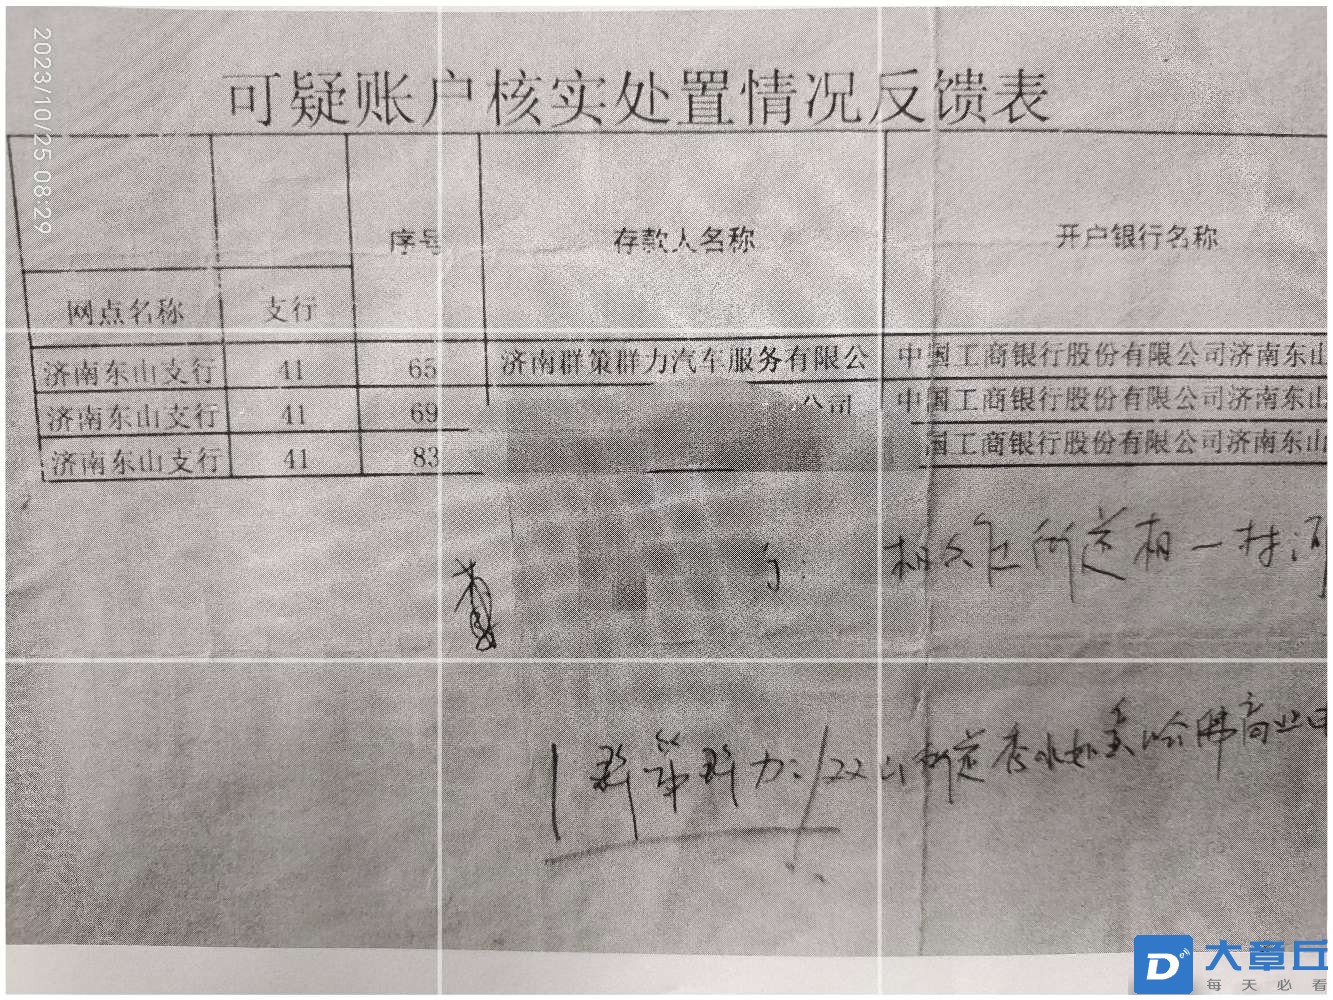 2023/10/25 08:29
可疑账户核实处置情况反馈表
序号 存款人名称 开户银行名称
网点名称 支行
济南东山支行 41 65 济南群策群力汽车服务有限公 中国工商银行股份有限公司济南东山
济南东山支行 41 69 公司 中国工商银行股份有限公司济南东山
济南东山支行 41 83 国工商银行股份有限公司济南东山
群策群力:
大章丘
每天必看